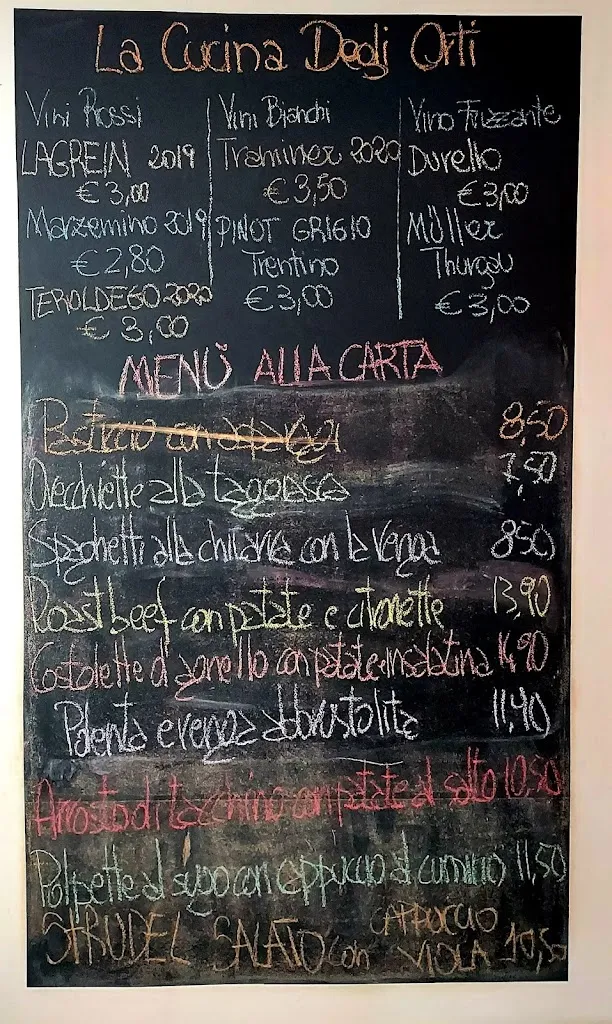 La Cucina Degli Orti
Vini Rossi
LAGREIN 2019
€ 3,00
Marzemino 2019
€ 2,80
TEROLDEGO 2020
€ 3,00
Vini Bianchi
Traminer 2020
€ 3,50
PINOT GRIGIO
Trentino
€ 3,00
Vino Frizzante
Durello
€ 3,00
Müller
Thurgau
€ 3,00
MENÙ ALLA CARTA
Pasticcio con asparagi 8,50
Orecchiette alla taggiasca 7,50
Spaghetti alla chitarra con la verza 8,50
Roast beef con patate e citronette 13,90
Costolette d'agnello con patate e insalatina 14,90
Polenta e verza abbrustolita 11,40
Arrosto di tacchino con patate al salto 10,50
Polpette al sugo con cappuccio al cumino 11,50
STRUDEL SALATO con CAPPUCCIO
VIOLA 10,50